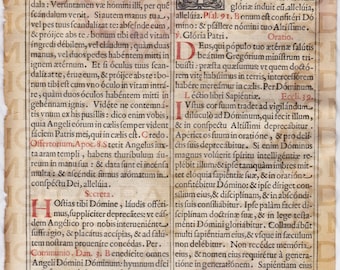 dala: Versuntamen væ homini illi, per qué
& próijce abs te: bonum tibi est ad vitam
ingredi débilem, vel claudum, quàm duas
manus, vel duos pedes habentem mitti in
ignem ætérnum. Et si óculus tuus scanda-
lizat te, érue eum, & próijce abs te: bonum
tibi est cum vno óculo in vitam intráre,
quàm duos óculos habentem mitti in
gehénnam ignis. Vidéte ne contemná-
tis vnum ex his pusillis: dico enim vobis,
quia Angeli eórum in cælis semper vident
fáciem Patris mei, qui in cælis est. Credo.
Offertorium. Apoc. 8. Stetit Angelus iux-
ta aram templi, habens thuribulum áu-
reum in manu sua: & data sunt ei incénsa
multa: & ascéndit fumus arómatum in
conspéctu Dei, alleluia.
Secreta.
Hóstias tibi Dómine, laudis offéri-
mus, supplíciter deprecántes: vt eás-
dem Angélico pro nobis interueniénte
suffrágio, & placátus accípias, & ad sa-
lútem nostram prouenire concédas. Per.
Communio. Dan. 3. Benedícite omnes
Angeli Dómini Dóminum: hymnum
glóriæ índuit eum, alleluia,
alleluia. Psal. 91. Bonum est confitéri Dó-
mino: & psállere nómini tuo Altíssime.
℣. Glória Patri.
Oratio.
Deus, qui pópulo tuo ætérnæ salútis
beátum Gregórium minístrum tri-
buísti: præsta quæsumus; vt quem doctó-
rem vitæ habúimus in terris, intercessó-
rem habére mereámur in cælis. Per Dóminum.
Léctio libri Sapiéntiæ. Eccli. 39.
Iustus cor suum tradet ad vigilándum
dilúculo ad Dóminum, qui fecit illum,
& in conspéctu Altíssimi deprecábitur.
Apériet os suum in oratióne, & pro de-
líctis suis deprecábitur. Si enim Dóminus
magnus volúerit spíritu intelligéntiæ re-
plébit illum: & ipse tamquam imbres
mittet elóquia sapiéntiæ suæ, & in oratió-
ne confitébitur Dómino: & ipse díriget con-
sílium eius, & disciplínam, & in abscón-
ditis suis consiliábitur. Ipse palam fáciet
disciplínam doctrínæ suæ, & in lege te-
staménti Dómini gloriábitur. Collaudábũt
multi sapiéntiam eius, & vsque in sǽculum
non delébitur. Non recédet memória
eius, & nomen eius requirétur à genera-
tióne in generatiónem. Sapiéntiam eius